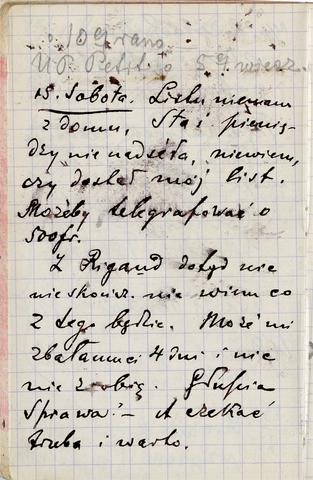 10 G rano
o 5 G wiecz.
15. Sobota. Listu niemam
z domu, Staś pienię-
dzy nie nadseła, niewiem,
czy dostał mój list.
Możeby telegrafować o
500 fr.
Z Rigaud dotąd nie
nieskończ. nie wiem co
z tego będzie. Może mi
zbałamuci 4 dni i nic
nie zrobię. Głupia
sprawa! — A czekać
trzeba i warto.